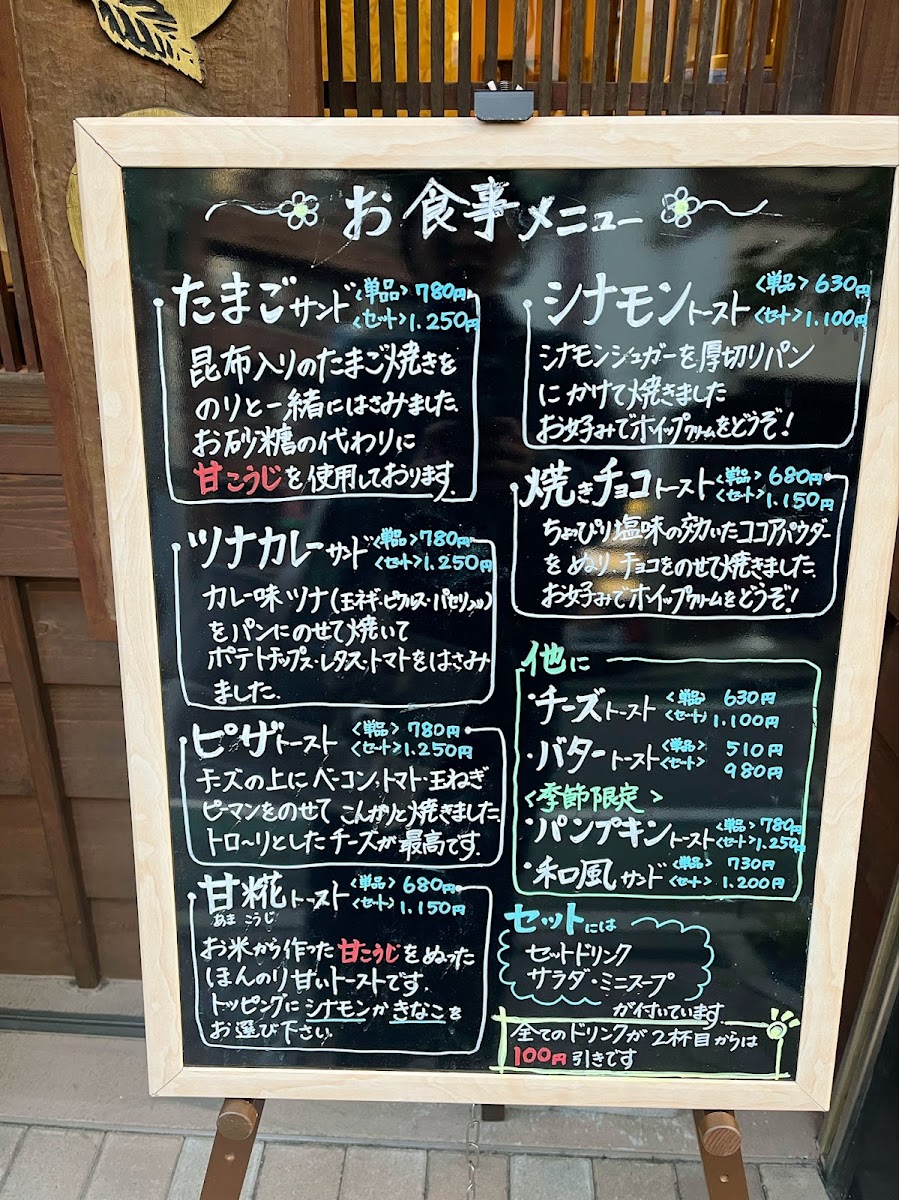 お食事メニュー
たまごサンド <単品> 780円
<セット> 1.250円
昆布入りのたまご焼きを
のりと一緒にはさみました.
お砂糖の代わりに
甘こうじを使用しております.
ツナカレーサンド <単品> 780円
<セット> 1.250円
カレー味ツナ(玉ネギ・ピクルス・パセリ入り)
をパンにのせて焼いて
ポテトチップス・レタス・トマトをはさみ
ました.
ピザトースト <単品> 780円
<セット> 1.250円
チーズの上にベーコン,トマト・玉ねぎ
ピーマンをのせてこんがりと焼きました.
トロ〜リとしたチーズが最高です.
甘糀トースト <単品> 680円
あま こうじ <セット> 1.150円
お米から作った甘こうじをぬった
ほんのり甘いトーストです.
トッピングにシナモンかきなこを
お選び下さい.
シナモントースト <単品> 630円
<セット> 1.100円
シナモンシュガーを厚切りパン
にかけて焼きました
お好みでホイップクリームをどうぞ!
焼きチョコトースト <単品> 680円
<セット> 1.150円
ちょっぴり塩味の効いたココアパウダー
をぬり.チョコをのせて焼きました.
お好みでホイップクリームをどうぞ!
他に
・チーズトースト <単品> 630円
<セット> 1.100円
・バタートースト <単品> 510円
<セット> 980円
<季節限定>
・パンプキントースト <単品> 780円
<セット> 1.250円
・和風サンド <単品> 730円
<セット> 1.200円
セットには
セットドリンク
サラダ・ミニスープ
が付いています.
全てのドリンクが2杯目からは
100円引きです